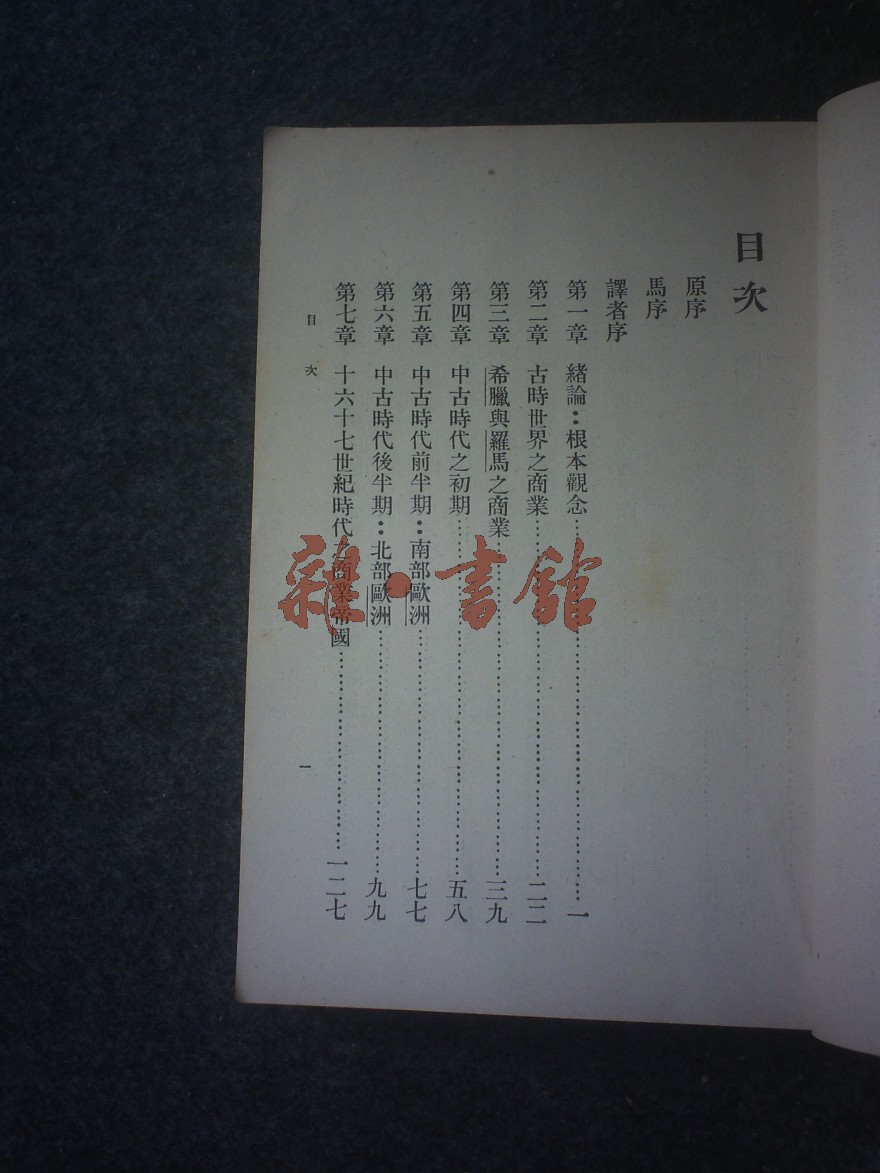 目次
原序
馬序
譯者序
第一章 緒論：根本觀念……一
第二章 古時世界之商業……二二
第三章 希臘與羅馬之商業……三九
第四章 中古時代之初期……五八
第五章 中古時代前半期：南部歐洲……七七
第六章 中古時代後半期：北部歐洲……九九
第七章 十六十七世紀時代之商業帝國……一二七
目次 一
雜·書館